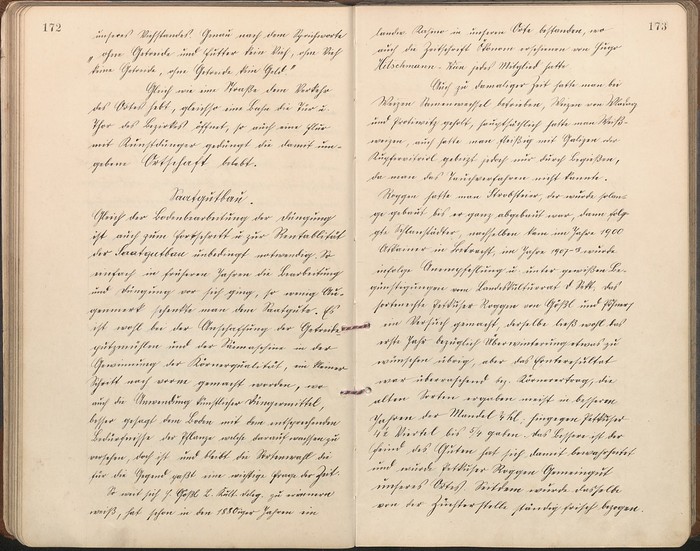 172
unseres Viehstandes. Genau nach dem Sprichworte
„ohne Getreide und Futter kein Vieh, ohne Vieh
keine Getreide, ohne Getreide kein Geld."
Gleich wie eine Straße dem Verkehr
des Ortes hebt, gleichso eine Bahn die Tür u.
Thor des Bezirkes öffnet, so auch eine Flur
mit Kunstdünger gedüngt die damit um-
gebene Ortschaft belebt.
Saatgutbau.
Gleich der Bodenbearbeitung der Düngung
ist auch zum Fortschritt u. zur Rentabilität
der Saatgutbau unbedingt notwendig. So
einfach in früheren Jahren die Bearbeitung
und Düngung vor sich ging, so wenig Au-
genmerk schenkte man dem Saatgute. Es
ist wohl bei der Anschaffung der Getreide-
putzmühlen und der Sämaschine in der
Gewinnung der Körnerqualität, ein kleiner
Schritt nach vorne gemacht worden, wo
auch die Anwendung künstlicher Düngermittel,
besser gesagt dem Boden mit dem entsprechenden
Bedürfnisse der Pflanze welche darauf wachsen zu
versehen, doch ist und bleibt die Sortenwahl die
für die Gegend paßt eine wichtige Frage der Zeit.
So weit sich J. Gößl L. Kult. Deleg. zu erinnern
weiß, hat schon in den 1880iger Jahren ein
173
Kasino in unseren Orte bestanden, wo
auch die Zeitschrift Ökonom erschienen von Hugo
Hitschmann. Kam jedes Mitglied hatte.
Auch zu damaliger Zeit hatte man bei
Weizen Samenwechsel betrieben, Weizen von
und geholt, hauptsächlich hatte man Weiß-
weizen, auch hatte man fleißig mit Galizen der
Kupfervitriol gebeizt jedoch nur durch Begießen,
da man das Tauchverfahren nicht kannte.
Roggen hatte man der wurde solan-
ge gebaut bis er ganz abgebaut war, dann folg-
te Schlanstädter, nachselben kam im Jahre 1900
in Betracht, im Jahre 1907-8 wurde
infolge Anempfehlung u. unter gewißen Be-
günstigungen vom Landeskulturrat d. Sekt. das
Petkuser Roggen von Gößl und
ein Versuch gemacht, derselbe ließ wohl das
erste Jahr bezüglich Überwinterung etwas zu
wünschen übrig, aber das Endresultat
war überraschend bez. Körnerertrag, die
alten Sorten ergaben meist in besseren
Jahren der Mandel ¼ hl. hingegen Petkuser
1½ Viertel bis 5/4 gaben. Das Bessere ist der
Feind des Guten hat sich damit bewahrheitet
und wurde Petkuser Roggen Gemeingut
unseres Ortes. Seitdem wurde dasselbe
von der Zuchterstelle ständig frisch bezogen.